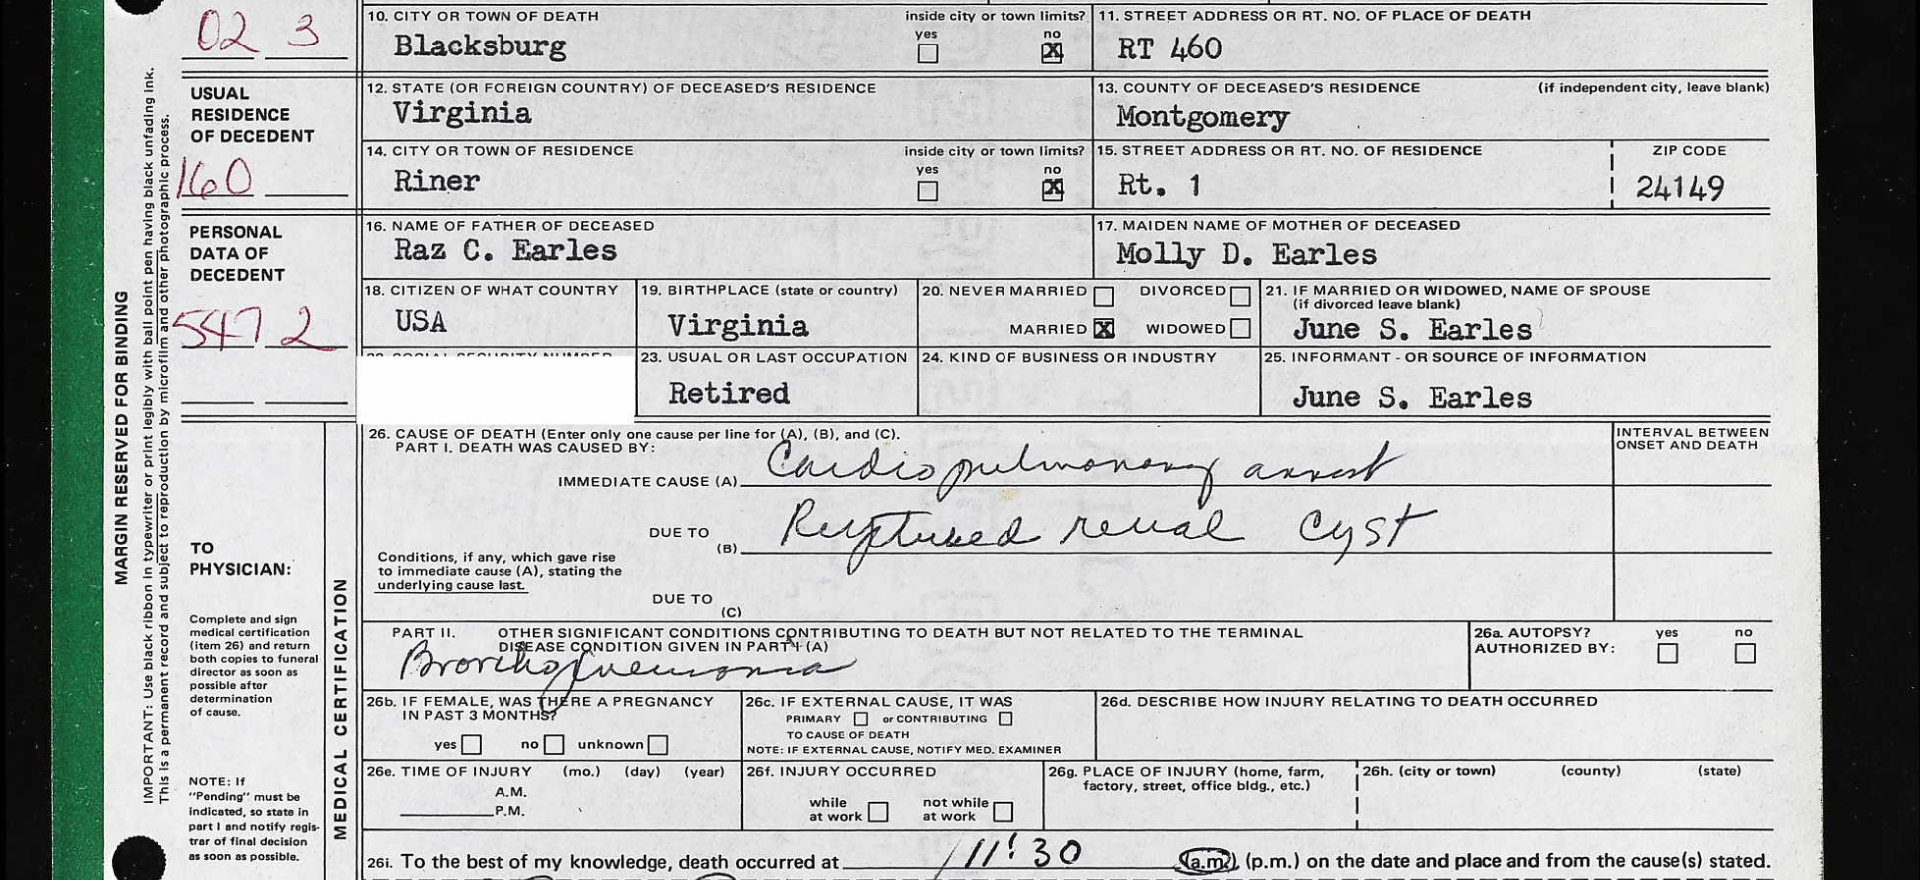 02 3
10. CITY OR TOWN OF DEATH inside city or town limits? yes no
Blacksburg X
11. STREET ADDRESS OR RT. NO. OF PLACE OF DEATH
RT 460
USUAL RESIDENCE OF DECEDENT
160
12. STATE (OR FOREIGN COUNTRY) OF DECEASED'S RESIDENCE
Virginia
13. COUNTY OF DECEASED'S RESIDENCE (if independent city, leave blank)
Montgomery
14. CITY OR TOWN OF RESIDENCE inside city or town limits? yes no
Riner X
15. STREET ADDRESS OR RT. NO. OF RESIDENCE ZIP CODE
Rt. 1 24149
PERSONAL DATA OF DECEDENT
547 2
16. NAME OF FATHER OF DECEASED
Raz C. Earles
17. MAIDEN NAME OF MOTHER OF DECEASED
Molly D. Earles
18. CITIZEN OF WHAT COUNTRY
USA
19. BIRTHPLACE (state or country)
Virginia
20. NEVER MARRIED DIVORCED
MARRIED X WIDOWED
21. IF MARRIED OR WIDOWED, NAME OF SPOUSE
(if divorced leave blank)
June S. Earles
23. USUAL OR LAST OCCUPATION
Retired
24. KIND OF BUSINESS OR INDUSTRY
25. INFORMANT - OR SOURCE OF INFORMATION
June S. Earles
MARGIN RESERVED FOR BINDING
IMPORTANT: Use black ribbon in typewriter or print legibly with ball point pen having black unfading ink.
This is a permanent record and subject to reproduction by microfilm and other photographic process.
TO PHYSICIAN:
Complete and sign
medical certification
(item 26) and return
both copies to funeral
director as soon as
possible after
determination
of cause.
NOTE: If
"Pending" must be
indicated, so state in
part I and notify regis-
trar of final decision
as soon as possible.
MEDICAL CERTIFICATION
26. CAUSE OF DEATH (Enter only one cause per line for (A), (B), and (C).
PART I. DEATH WAS CAUSED BY:
INTERVAL BETWEEN
ONSET AND DEATH
IMMEDIATE CAUSE (A) Cardiopulmonary arrest
DUE TO (B) Ruptured renal cyst
Conditions, if any, which gave rise
to immediate cause (A), stating the
underlying cause last.
DUE TO (C)
PART II. OTHER SIGNIFICANT CONDITIONS CONTRIBUTING TO DEATH BUT NOT RELATED TO THE TERMINAL
DISEASE CONDITION GIVEN IN PART I (A)
Bronchopneumonia
26a. AUTOPSY? yes no
AUTHORIZED BY:
26b. IF FEMALE, WAS THERE A PREGNANCY
IN PAST 3 MONTHS?
yes no unknown
26c. IF EXTERNAL CAUSE, IT WAS
PRIMARY or CONTRIBUTING
TO CAUSE OF DEATH
NOTE: IF EXTERNAL CAUSE, NOTIFY MED. EXAMINER
26d. DESCRIBE HOW INJURY RELATING TO DEATH OCCURRED
26e. TIME OF INJURY (mo.) (day) (year)
A.M.
P.M.
26f. INJURY OCCURRED
while at work not while at work
26g. PLACE OF INJURY (home, farm,
factory, street, office bldg., etc.)
26h. (city or town) (county) (state)
26i. To the best of my knowledge, death occurred at 11:30 (a.m.), (p.m.) on the date and place and from the cause(s) stated.